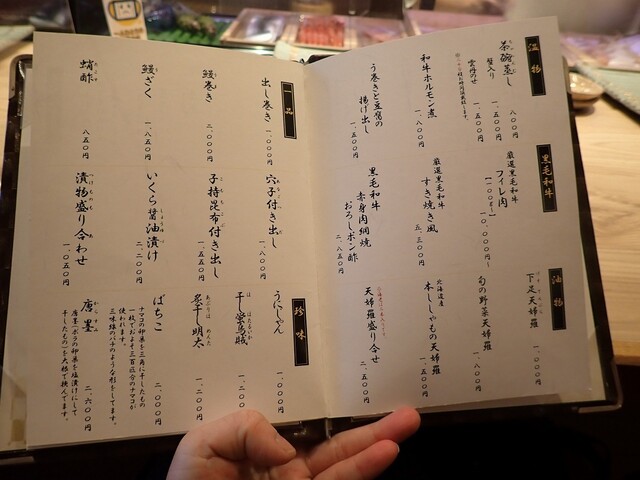 温物
茶碗蒸し 八〇〇円
蟹入り 一、五〇〇円
雲丹のせ 一、五〇〇円
和牛ホルモン煮 一、八〇〇円
う巻きと豆腐の
揚げ出し 一、五〇〇円
黒毛和牛
厳選黒毛和牛
フィレ肉
一〇、〇〇〇円
厳選黒毛和牛
すき焼き風 五、三〇〇円
黒毛和牛
赤身肉網焼
おろしポン酢 二、八五〇円
油物
下足天婦羅 一、〇〇〇円
旬の野菜天婦羅 一、八〇〇円
北海道産
本ししゃもの天婦羅 一、五〇〇円
天婦羅盛り合せ 二、五〇〇円
一品
出し巻き 一、〇〇〇円
鰻巻き 二、〇〇〇円
鰻ざく 一、八五〇円
蛸酢 八五〇円
穴子付き出し 一、八〇〇円
子持昆布付き出し 一、五五〇円
いくら醤油漬け 二、二〇〇円
漬物盛り合わせ 一、〇五〇円
珍味
うにしゃん 一、〇〇〇円
干し蛍烏賊 一、二〇〇円
炙干し明太 一、二〇〇円
ばちこ 二、〇〇〇円
ナマコの卵巣を三角に干したもの
一枚でおよそ三百匹分のナマコが
使われます。
三味線のバチのような形をしてます。
唐墨 二、六〇〇円
唐墨(ボラの卵巣を塩漬けにして
干したもの)を大根で挟んでます。